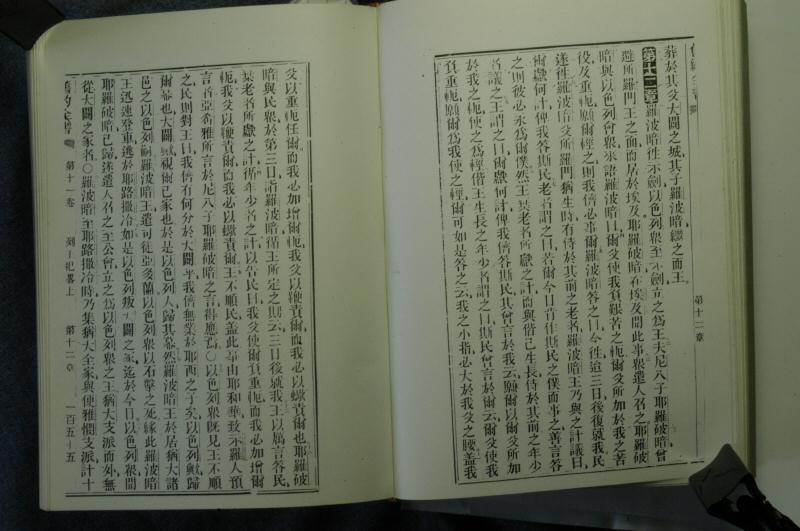 葬於其父大闢之城其子羅波暗繼之而王
第十二章羅波暗徃示劍以色列眾至示劍立之為王夫尼八子耶羅破暗曾
避所羅門王之面而居於埃及耶羅破暗在埃及聞此事眾遣人召之耶羅破
暗與以色列會眾來語羅波暗曰爾父使我負艱苦之軛爾父所加於我之苦
役及重軛願爾輕之則我儕必事爾羅波暗答之曰今徃迨三日後復就我民
遂徃羅波暗父所羅門猶生時有侍於其前之老者羅波暗王乃與之計議曰
爾獻何計俾我答斯民老者謂之曰若爾今日肯作斯民之僕而事之善言答
之則彼必永為爾僕然王棄老者所獻之計而與偕己生長侍於其前之年少
者議之王謂之曰爾獻何計俾我儕答斯民其曾言於我云願爾以爾父所加
於我之軛使之為輕偕王生長之年少者謂之曰斯民曾言於爾云爾父使我
負重軛願爾為我使之輕爾可如是答之云我之小指必大於我父之腰蓋我
父以重軛任爾而我必加增爾軛我父以鞭責爾而我必以蠍責爾也耶羅破
暗與民眾於第三日詣羅波暗循王所定之期云三日後就我王以厲言答民
棄老者所獻之計循年少者之計以告民曰我父使爾負重軛而我必加增爾
軛我父以鞭責爾而我必以蠍責爾王不順民蓋此事由耶和華致示羅人預
言者亞希雅所言於尼八子耶羅破暗之言得應焉○以色列眾既見王不順
之民則對王曰我儕有何分於大闢乎我儕無業於耶西之子矣以色列歟歸
爾幕也大闢歟視爾己家也於是以色列人歸其幕然羅波暗王於居猶大諸
邑之以色列嗣羅波暗王遣司征亞多蘭以色列眾以石擊之死緣此羅波暗
王迅速登車逃於耶路撒冷如是以色列叛大闢之家迄於今日以色列眾聞
耶羅破暗已歸遂遣人召之至公會立之為以色列眾之王猶大支派而外無
從大闢之家者○羅波暗至耶路撒冷時乃集猶大全家與便雅憫支派計十
第十二章
舊約全書 第十一卷 列王紀畧上 第十二章 一百五十五